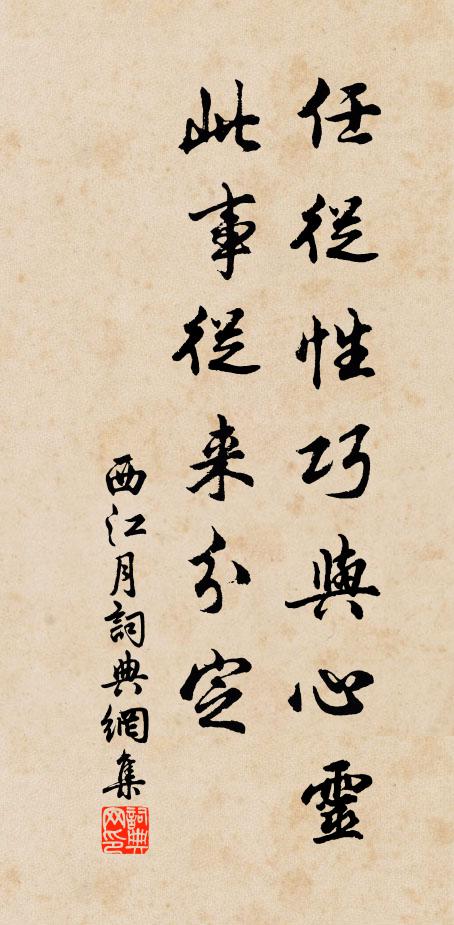 任從性巧與心靈
此事從来分定
西江月詞典網集
詞典
网印